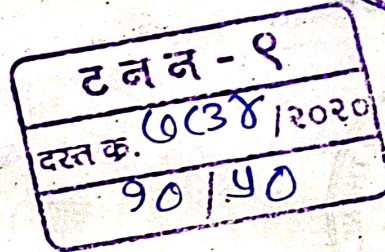 ट न न - ९
दस्त क्र. ७८३४/२०२०
१०/५०